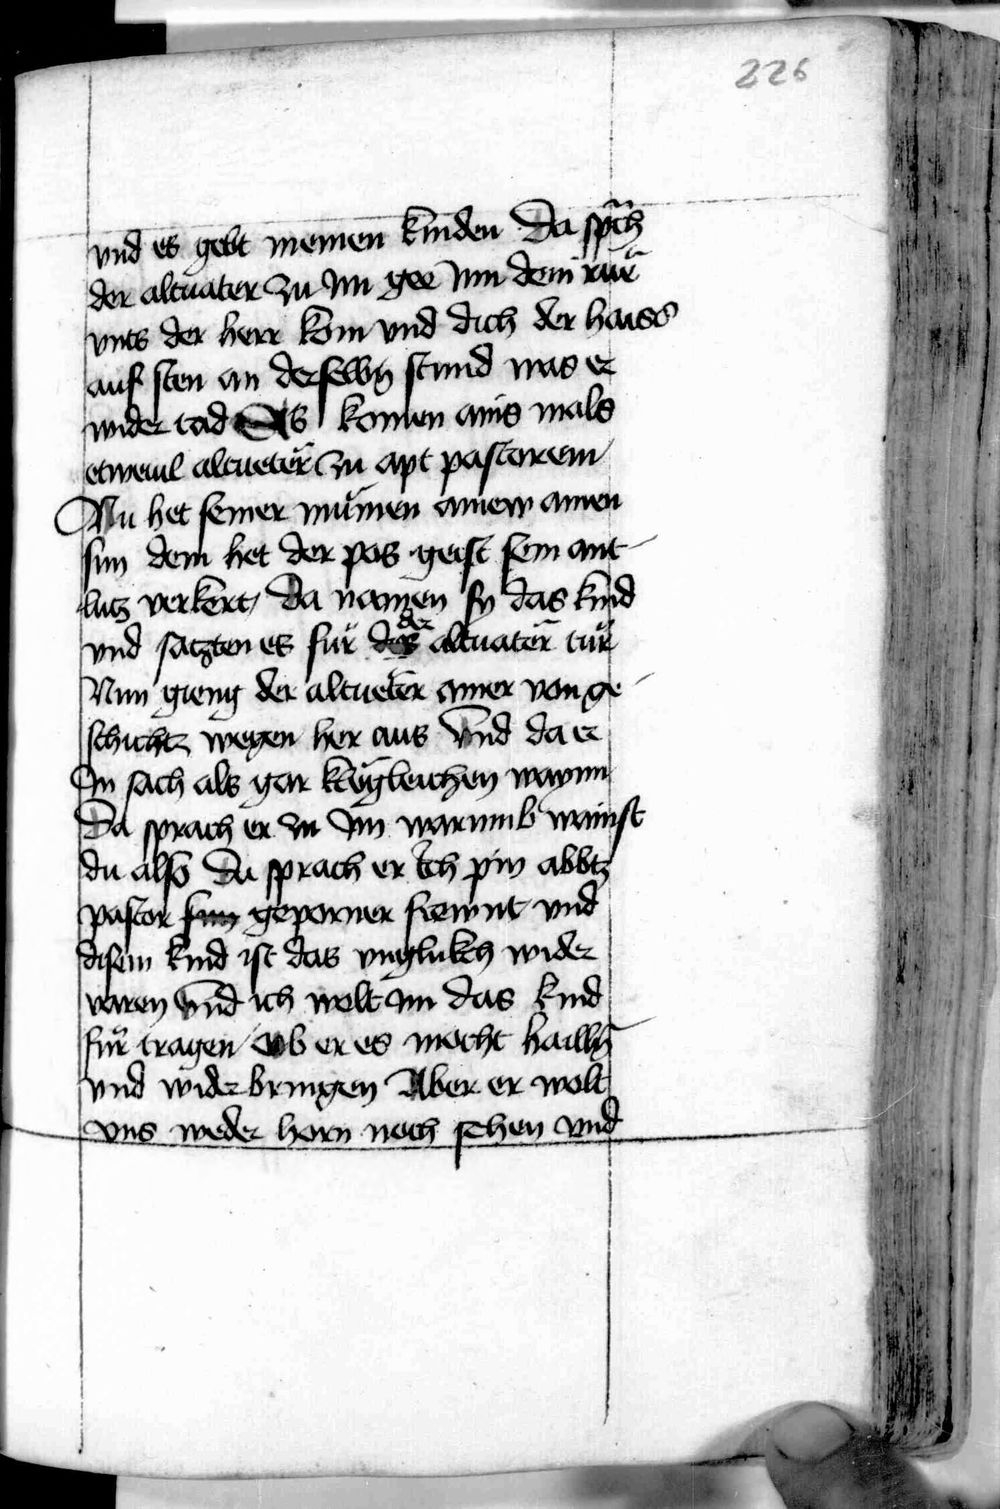 226
vnd es gebt meinen kinden Da sprch
der altuater zu im gee nim dein rue
vnts der herr kom vnd dich der haiss
auf sten an derselbñ stund was er
wider tod Es komen ains mals
etweuil altueter zu apt pastorem
Nu het seiner mumen ainew ainen
sun dem het der pos geist sein ant
lutz verkert Da namen sy das kind
vnd satzten es fur der altuater tur
Nun gieng der altueter ainer von ge
schichtz wegen her aus Vnd da er
In sach als gar klögleichen waynn
Da sprach er zu im warumb wainst
du also Da sprach er Ich pin abbtz
pastor geporner frewnt vnd
disem kind ist das vnglukch wider
varen Vnd ich wolt im das kind
fur tragen Ob er es mocht hailln
vnd wider bringen Aber er wolt
vns weder horn noch sehen vnd